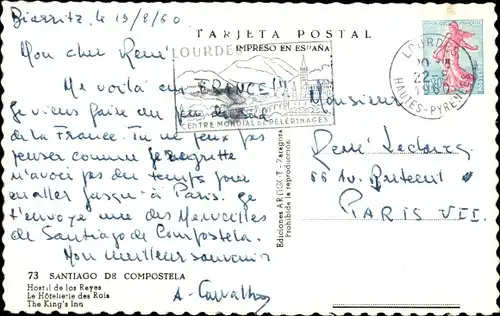 Biarritz, le 19/8/60
TARJETA POSTAL
IMPRESO EN ESPAÑA
Mon cher René
LOURDES
Me voilà au FRANCE!!!
CENTRE MONDIAL DE PÈLERINAGES
LOURDES
22-8
1960
HAUTES-PYRENEES
Je viens faire un peu du sud
de la France. Tu ne peux pas
penser comme je regrette
n'avoir pas du temps pour
en aller jusqu'à Paris. Je
t'envoye une des Merveilles
de Santiago de Compostela.
Mon meilleur souvenir
A. Carvalho
Monsieur
René Leclercq
66 Av. Breteuil
PARIS VII.
Ediciones ARTIGOT. Zaragoza
Prohibida la reproducción
73 SANTIAGO DE COMPOSTELA
Hostal de los Reyes
Le Hôtellerie des Rois
The King's Inn